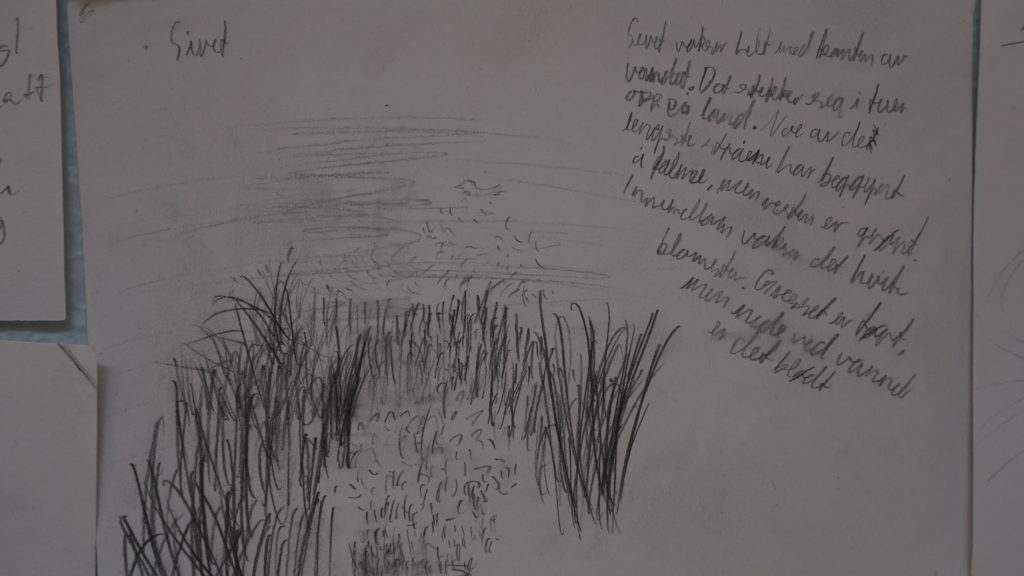 Sivet
Sivet vokser helt ved kanten av
vandet. Det stikker seg i tuer
opp på land. Noe av det
lengste stråene har begynt
å falme, men resten er grønt.
Innimellom vokser det hvite
blomster. Gresset er tørt,
men nede ved vannet
er det bløtt